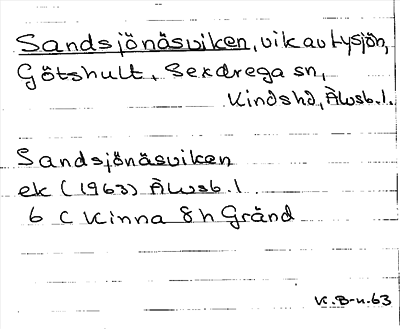 Sandsjönäsviken, vik av Lysjön,
Götshult, Sexdrega sn,
Kindshd, Älvsb.l.
Sandsjönäsviken
ek (1963) Älvsb.l
6 C Kinna 8 h Gränd
K.B-n.63